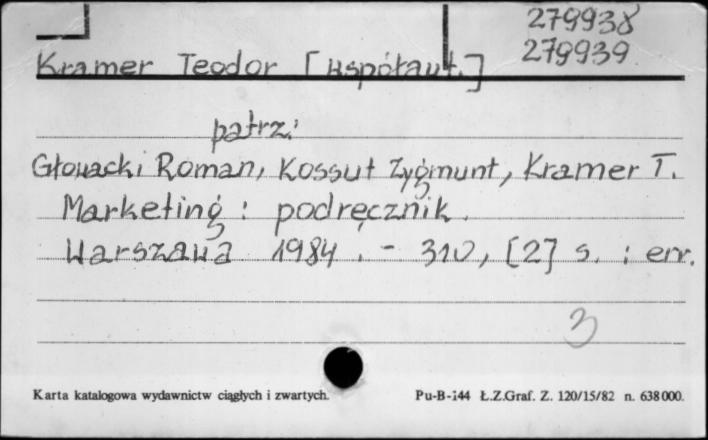 279938
279939
Kramer Teodor [współaut.]
patrz:
Głowacki Roman, Kossut Zygmunt, Kramer T.
Marketing : podręcznik.
Warszawa 1984. - 310, [2] s. : err.
3
Karta katalogowa wydawnictw ciągłych i zwartych. Pu-B-144 Ł.Z.Graf. Z. 120/15/82 n. 638 000.